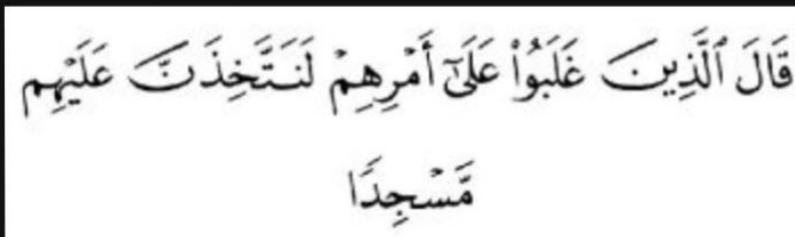 قَالَ ٱلَّذِينَ غَلَبُوا۟ عَلَىٰٓ أَمْرِهِمْ لَنَتَّخِذَنَّ عَلَيْهِم
مَّسْجِدًا